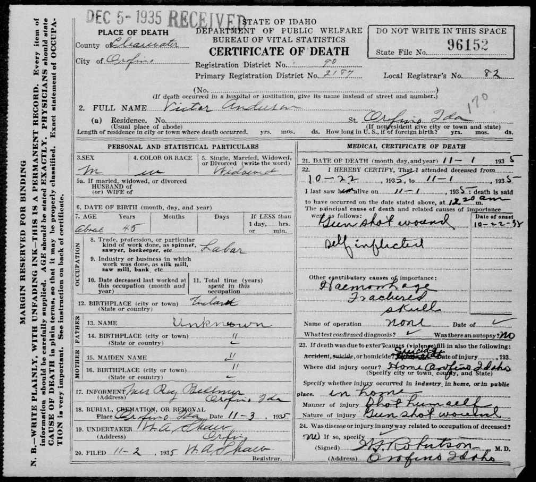 DEC 5-1935 RECEIVED
STATE OF IDAHO
DEPARTMENT OF PUBLIC WELFARE
BUREAU OF VITAL STATISTICS
CERTIFICATE OF DEATH
DO NOT WRITE IN THIS SPACE
State File No. 96152
PLACE OF DEATH
County of Clearwater
City of Orofino
Registration District No. 90
Primary Registration District No. 2187
Local Registrar's No. 82
(No.
(If death occurred in a hospital or institution, give its name instead of street and number.)
2. FULL NAME Victor Anderson
170
(a) Residence. No. St. Orofino Ida
(Usual place of abode) (If nonresident give city or town and state)
Length of residence in city or town where death occurred. yrs. mos. ds. How long in U. S., if of foreign birth? yrs. mos. ds.
PERSONAL AND STATISTICAL PARTICULARS
3. SEX
M
4. COLOR OR RACE
w
5. Single, Married, Widowed, or Divorced
Widowed
5a. If married, widowed, or divorced
HUSBAND of
(or) WIFE of
6. DATE OF BIRTH (month, day, and year)
7. AGE Years Months Days If LESS than 1 day, hrs. or min.
about 45
OCCUPATION
8. Trade, profession, or particular kind of work done, as spinner, sawyer, bookkeeper, etc. Labor
9. Industry or business in which work was done, as silk mill, saw mill, bank, etc.
10. Date deceased last worked at this occupation (month and year)
11. Total time (years) spent in this occupation
12. BIRTHPLACE (city or town)
(State or country)
FATHER
13. NAME Unknown
14. BIRTHPLACE (city or town) "
(State or country) "
MOTHER
15. MAIDEN NAME "
16. BIRTHPLACE (city or town) "
(State or country)
17. INFORMANT Mrs Roy
(Address) Orofino Ida
18. BURIAL, CREMATION, OR REMOVAL
Place Orofino Ida Date 11-3, 1935
19. UNDERTAKER W.A. Shaw
(Address) Orofino
20. FILED 11-2, 1935 W.A. Shaw
Registrar.
MEDICAL CERTIFICATE OF DEATH
21. DATE OF DEATH (month, day, and year) 11-1 1935
22. I HEREBY CERTIFY, That I attended deceased from
10-22, 1935, to 11-1, 1935
I last saw alive on 11-1, 1935; death is said
to have occurred on the date stated above, at 12:20 am
The principal cause of death and related causes of importance
were as follows: Date of onset
Gun shot wound 10-22-35
self inflicted
Other contributary causes of importance:
Haemorrhage
Fractured
skull
Name of operation none Date of
What test confirmed diagnosis? Was there an autopsy? No
23. If death was due to external causes (violence) fill in also the following:
Accident, suicide, or homicide? suicide Date of injury, 193
Where did injury occur? Home Orofino Idaho
(Specify city or town, county, and State)
Specify whether injury occurred in industry, in home, or in public
place. in home
Manner of injury Shot himself
Nature of injury Gun shot wound
24. Was disease or injury in any way related to occupation of deceased?
No If so, specify
(Signed) Robertson M. D.
(Address) Orofino Idaho
MARGIN RESERVED FOR BINDING
N. B.—WRITE PLAINLY, WITH UNFADING INK—THIS IS A PERMANENT RECORD. Every item of
information should be carefully supplied. AGE should be stated EXACTLY. PHYSICIANS should state
CAUSE OF DEATH in plain terms, so that it may be properly classified. Exact statement of OCCUPA-
TION is very important. See instruction on back of certificate.